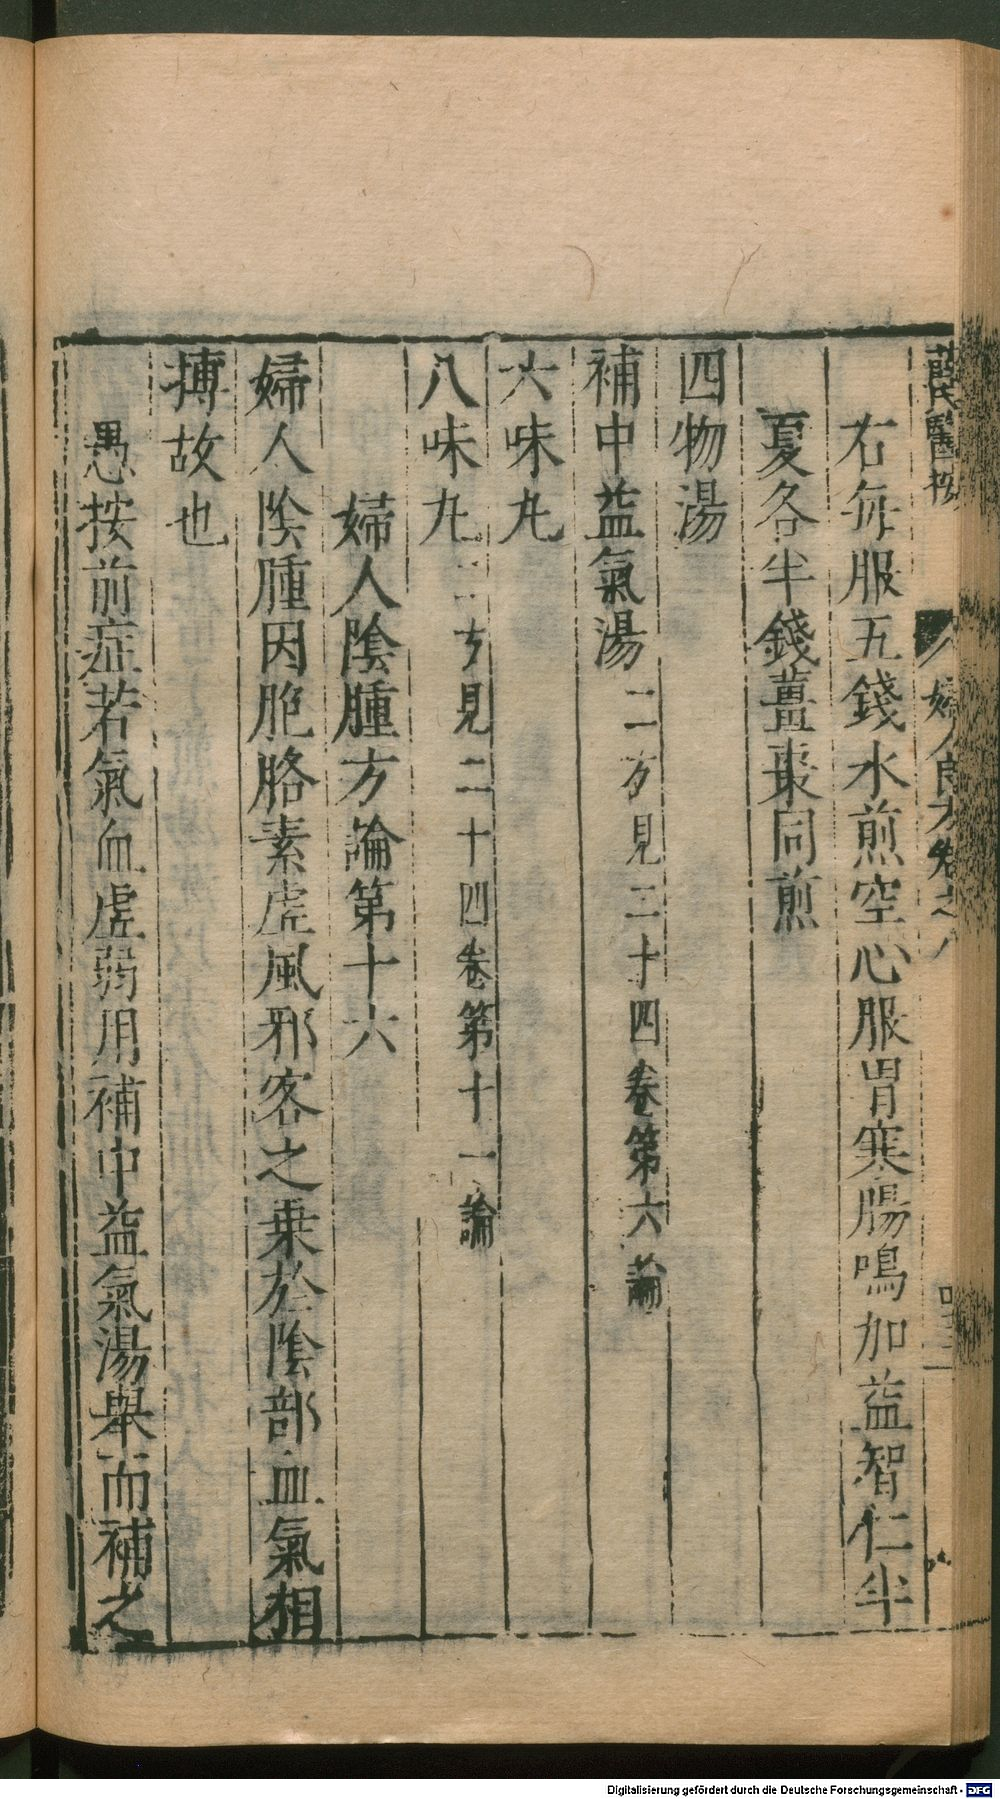 薛氏醫按 婦人良方卷之八
右每服五錢水煎空心服胃寒腸鳴加益智仁半
夏各半錢薑棗同煎
四物湯
補中益氣湯二方見二十四卷第六論
六味丸
八味丸二方見二十四卷第十一論
婦人陰腫方論第十六
婦人陰腫因胞胳素虛風邪客之乗於陰部血氣相
搏故也
愚按前症若氣血虛弱用補中益氣湯舉而補之
Digitalisierung gefördert durch die Deutsche Forschungsgemeinschaft - DFG